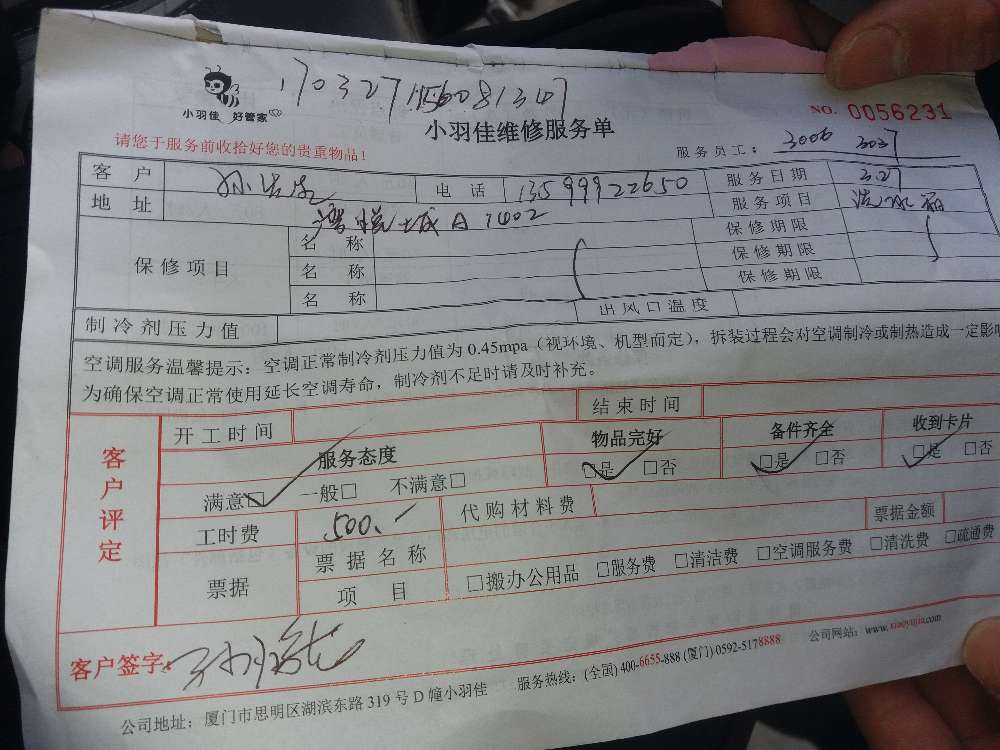 1703271156081347
小羽佳 好管家
NO. 0056231
小羽佳维修服务单
请您于服务前收拾好您的贵重物品!
服务员工: 3006 3037
客户 孙 电话 13599922650 服务日期 3.27
地址 城A 1402 服务项目 洗冰箱
保修项目 名称 保修期限
名称 保修期限
名称 保修期限
制冷剂压力值 出风口温度
空调服务温馨提示:空调正常制冷剂压力值为0.45mpa(视环境、机型而定),拆装过程会对空调制冷或制热造成一定影
为确保空调正常使用延长空调寿命,制冷剂不足时请及时补充。
客户评定
开工时间 结束时间
服务态度 物品完好 备件齐全 收到卡片
满意□ 一般□ 不满意□ □是 □否 □是 □否 □是 □否
工时费 500.- 代购材料费
票据 票据名称 票据金额
项目 □搬办公用品 □服务费 □清洁费 □空调服务费 □清洗费 □疏通费
客户签字:
公司地址:厦门市思明区湖滨东路319号D幢小羽佳 服务热线:(全国)400-6655-888 (厦门)0592-5178888 公司网站:www.xiaoyujia.com